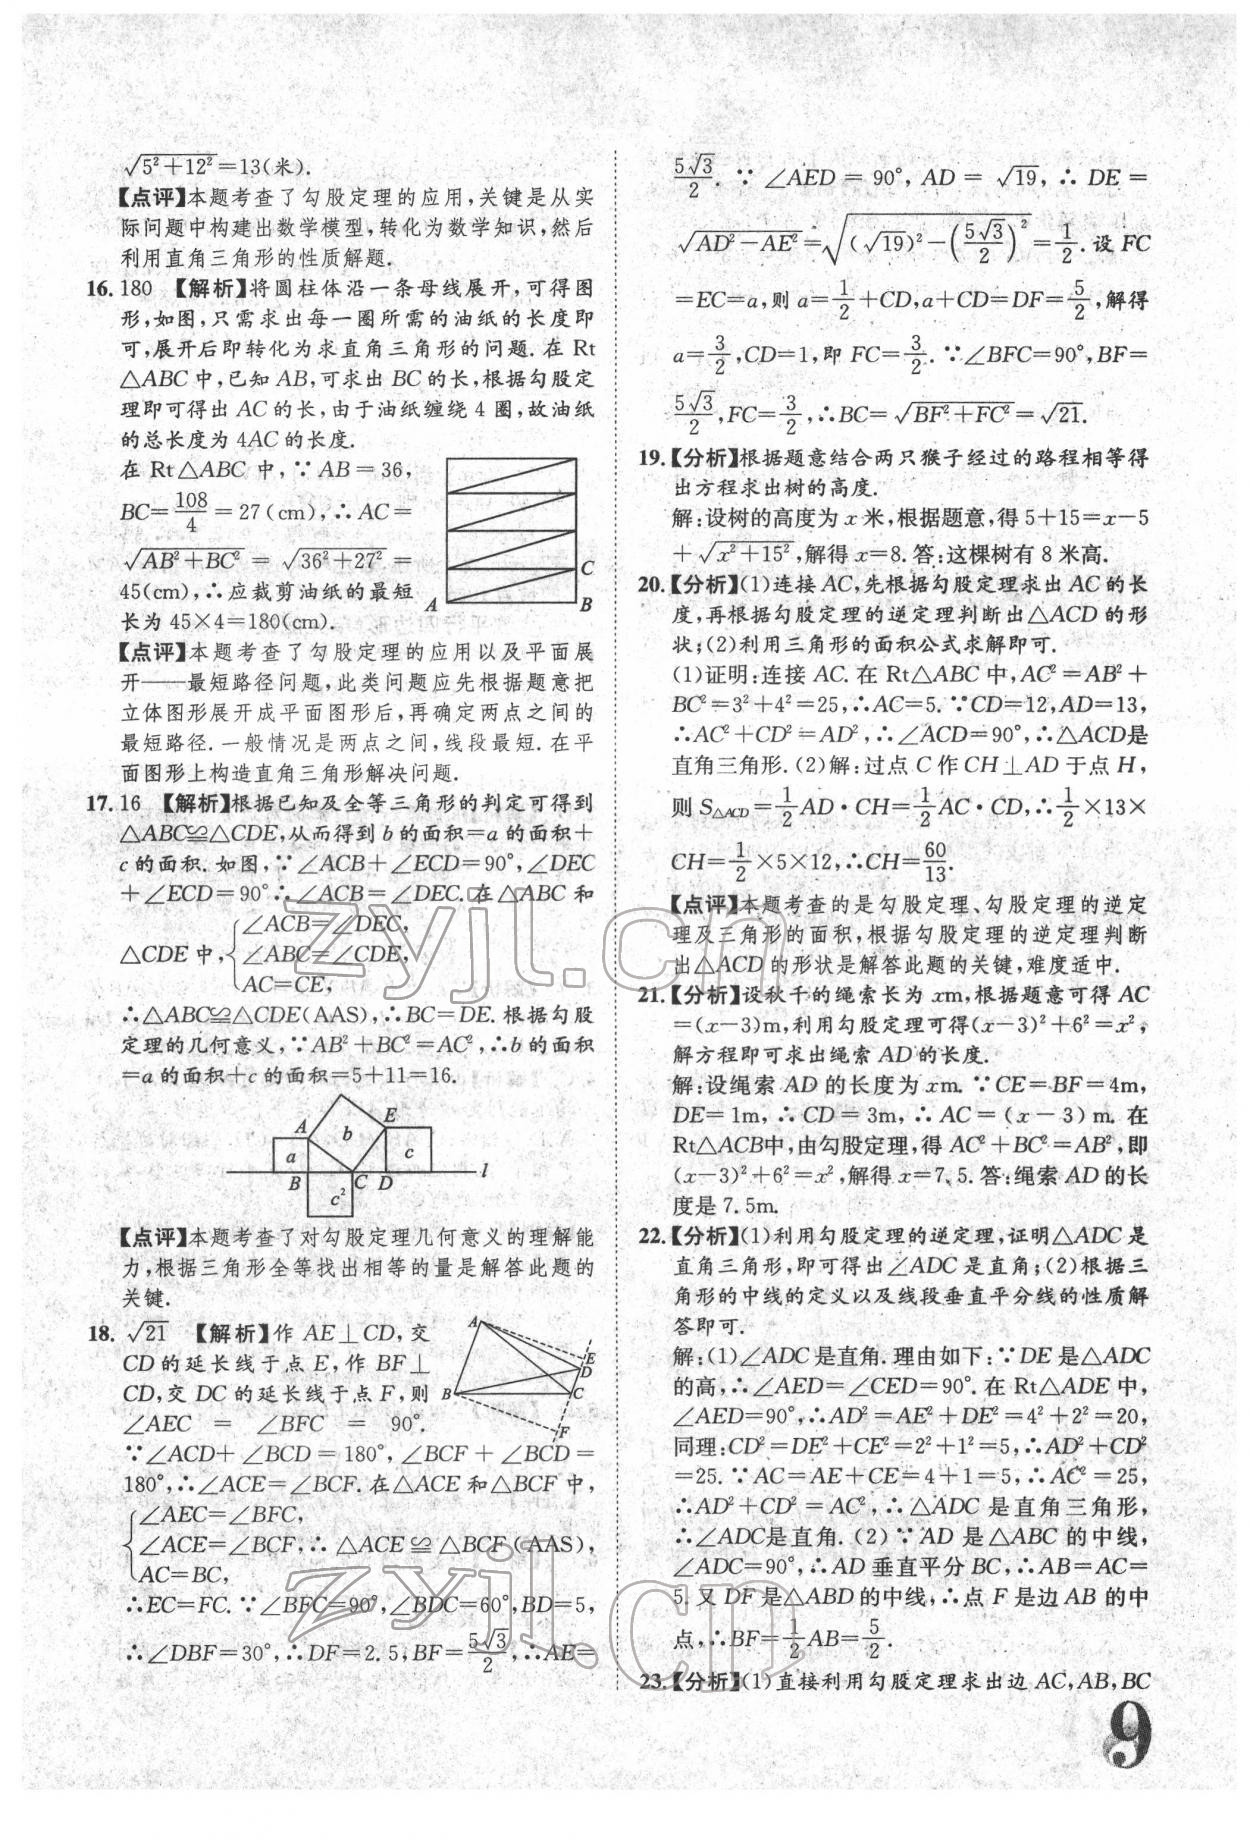 √5²+12²=13(米).
【点评】本题考查了勾股定理的应用,关键是从实
际问题中构建出数学模型,转化为数学知识,然后
利用直角三角形的性质解题.
16. 180 【解析】将圆柱体沿一条母线展开,可得图
形,如图,只需求出每一圈所需的油纸的长度即
可,展开后即转化为求直角三角形的问题.在 Rt
△ABC 中,已知 AB,可求出 BC 的长,根据勾股定
理即可得出 AC 的长,由于油纸缠绕 4 圈,故油纸
的总长度为 4AC 的长度.
在 Rt△ABC 中,∵AB=36,
BC=108/4=27(cm),∴AC=
√AB²+BC² = √36²+27² =
45(cm),∴应裁剪油纸的最短
长为 45×4=180(cm).
C
A
B
【点评】本题考查了勾股定理的应用以及平面展
开——最短路径问题,此类问题应先根据题意把
立体图形展开成平面图形后,再确定两点之间的
最短路径.一般情况是两点之间,线段最短.在平
面图形上构造直角三角形解决问题.
17. 16 【解析】根据已知及全等三角形的判定可得到
△ABC≌△CDE,从而得到 b 的面积=a 的面积+
c 的面积.如图,∵∠ACB+∠ECD=90°,∠DEC
+∠ECD=90°∴∠ACB=∠DEC.在△ABC 和
△CDE 中,{∠ACB=∠DEC,
∠ABC=∠CDE,
AC=CE,
∴△ABC≌△CDE(AAS),∴BC=DE.根据勾股
定理的几何意义,∵AB²+BC²=AC²,∴b 的面积
=a 的面积+c 的面积=5+11=16.
A b E
a c
B C D l
c²
【点评】本题考查了对勾股定理几何意义的理解能
力,根据三角形全等找出相等的量是解答此题的
关键.
18. √21 【解析】作 AE⊥CD,交
CD 的延长线于点 E,作 BF⊥
CD,交 DC 的延长线于点 F,则
∠AEC = ∠BFC = 90°.
A
E
D
B
C
F
∵∠ACD+∠BCD=180°,∠BCF+∠BCD=
180°,∴∠ACE=∠BCF.在△ACE 和△BCF 中,
{∠AEC=∠BFC,
∠ACE=∠BCF,∴△ACE≌△BCF(AAS),
AC=BC,
∴EC=FC.∵∠BFC=90°,∠BDC=60°,BD=5,
∴∠DBF=30°,∴DF=2.5,BF=5√3/2,∴AE=
5√3/2.∵∠AED=90°,AD=√19,∴DE=
√AD²-AE²=√(√19)²-(5√3/2)²=1/2.设 FC
=EC=a,则 a=1/2+CD,a+CD=DF=5/2,解得
a=3/2,CD=1,即 FC=3/2.∵∠BFC=90°,BF=
5√3/2,FC=3/2,∴BC=√BF²+FC²=√21.
19.【分析】根据题意结合两只猴子经过的路程相等得
出方程求出树的高度.
解:设树的高度为 x 米,根据题意,得 5+15=x-5
+√x²+15²,解得 x=8.答:这棵树有 8 米高.
20.【分析】(1)连接 AC,先根据勾股定理求出 AC 的长
度,再根据勾股定理的逆定理判断出△ACD 的形
状;(2)利用三角形的面积公式求解即可.
(1)证明:连接 AC.在 Rt△ABC 中,AC²=AB²+
BC²=3²+4²=25,∴AC=5.∵CD=12,AD=13,
∴AC²+CD²=AD²,∴∠ACD=90°,∴△ACD是
直角三角形.(2)解:过点 C 作 CH⊥AD 于点 H,
则 S△ACD=1/2AD·CH=1/2AC·CD,∴1/2×13×
CH=1/2×5×12,∴CH=60/13.
【点评】本题考查的是勾股定理、勾股定理的逆定
理及三角形的面积,根据勾股定理的逆定理判断
出△ACD 的形状是解答此题的关键,难度适中.
21.【分析】设秋千的绳索长为 xm,根据题意可得 AC
=(x-3)m,利用勾股定理可得(x-3)²+6²=x²,
解方程即可求出绳索 AD 的长度.
解:设绳索 AD 的长度为 xm.∵CE=BF=4m,
DE=1m,∴CD=3m,∴AC=(x-3)m.在
Rt△ACB中,由勾股定理,得 AC²+BC²=AB²,即
(x-3)²+6²=x²,解得 x=7.5.答:绳索 AD 的长
度是 7.5m.
22.【分析】(1)利用勾股定理的逆定理,证明△ADC 是
直角三角形,即可得出∠ADC 是直角;(2)根据三
角形的中线的定义以及线段垂直平分线的性质解
答即可.
解:(1)∠ADC 是直角.理由如下:∵DE 是△ADC
的高,∴∠AED=∠CED=90°.在 Rt△ADE 中,
∠AED=90°,∴AD²=AE²+DE²=4²+2²=20,
同理:CD²=DE²+CE²=2²+1²=5,∴AD²+CD²
=25.∵AC=AE+CE=4+1=5,∴AC²=25,
∴AD²+CD²=AC²,∴△ADC 是直角三角形,
∴∠ADC是直角.(2)∵AD 是△ABC 的中线,
∠ADC=90°,∴AD 垂直平分 BC,∴AB=AC=
5.又 DF 是△ABD 的中线,∴点 F 是边 AB 的中
点,∴BF=1/2AB=5/2.
23.【分析】(1)直接利用勾股定理求出边 AC,AB,BC
9
zyjl.cn
zyjl.cn